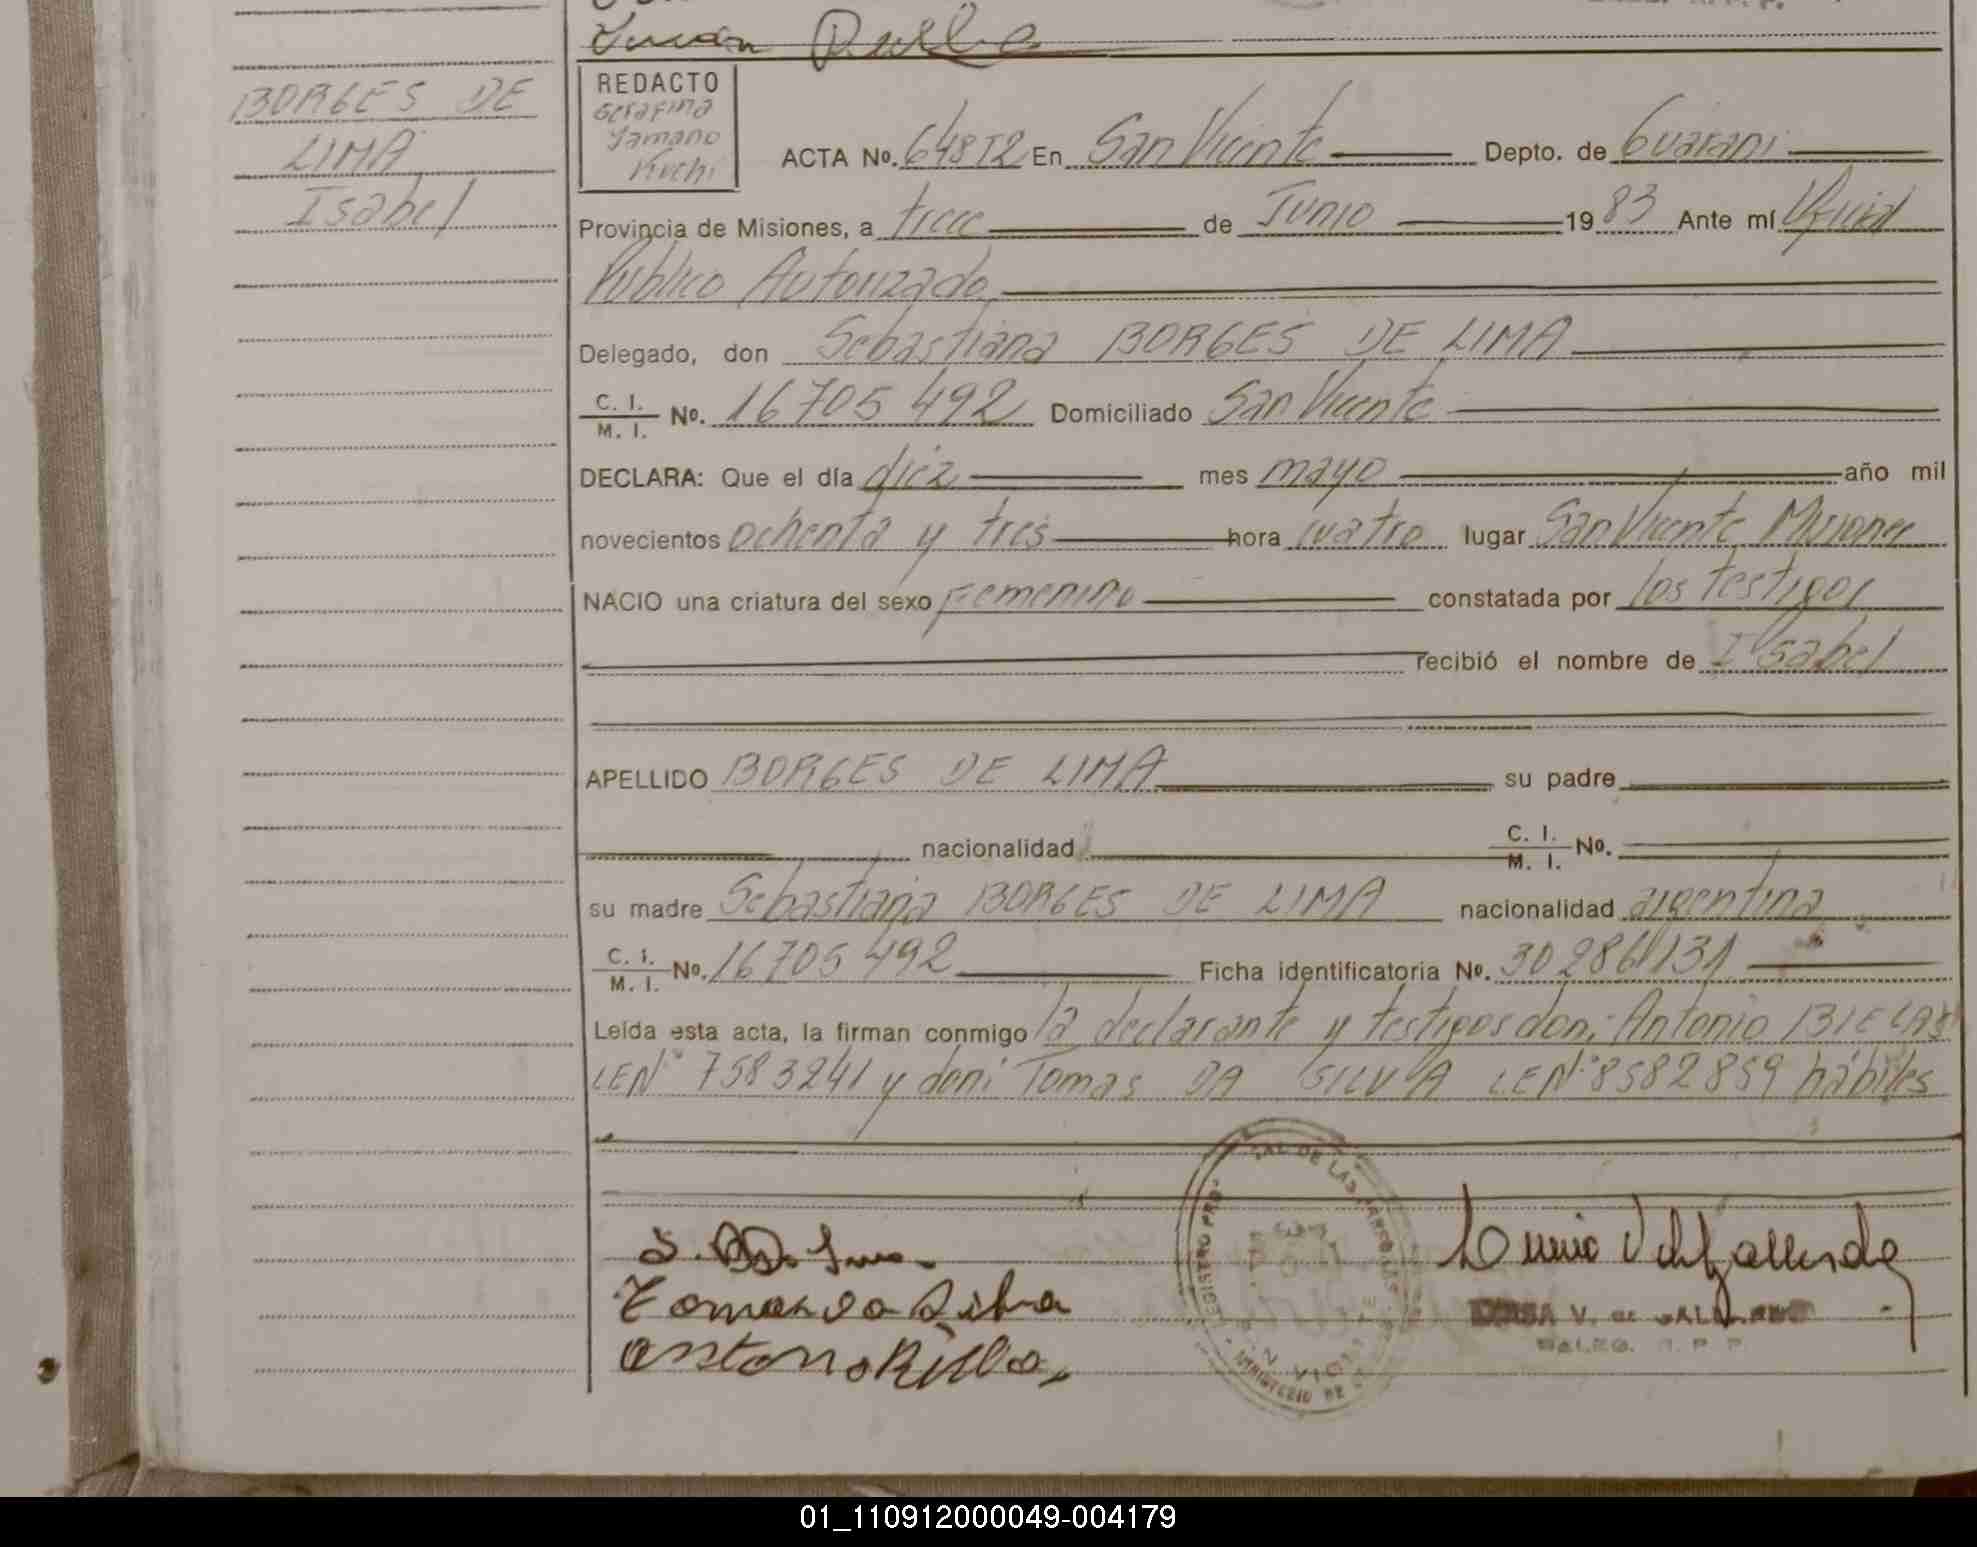 BORGES DE
LIMA
Isabel
REDACTO
Serafina
Yamano
Kuchi
ACTA No. 648 T2 En San Vicente Depto. de Guarani
Provincia de Misiones, a trece de Junio 1983 Ante mí Oficial
Público Autorizado
Delegado, don Sebastiana BORGES DE LIMA
C. I. / M. I. No. 16705 492 Domiciliado San Vicente
DECLARA: Que el día diez mes mayo año mil
novecientos ochenta y tres hora cuatro lugar San Vicente Misiones
NACIO una criatura del sexo Femenino constatada por los testigos
recibió el nombre de Isabel
APELLIDO BORGES DE LIMA su padre
nacionalidad C. I. / M. I. No.
su madre Sebastiana BORGES DE LIMA nacionalidad argentina
C. I. / M. I. No. 16705 492 Ficha identificatoria No. 30286131
Leída esta acta, la firman conmigo la declarante y testigos don: Antonio
LEN° 7583241 y don: Tomas DA SILVA LEN° 8582859 hábiles
Tomas da Silva
V. de
01_110912000049-004179